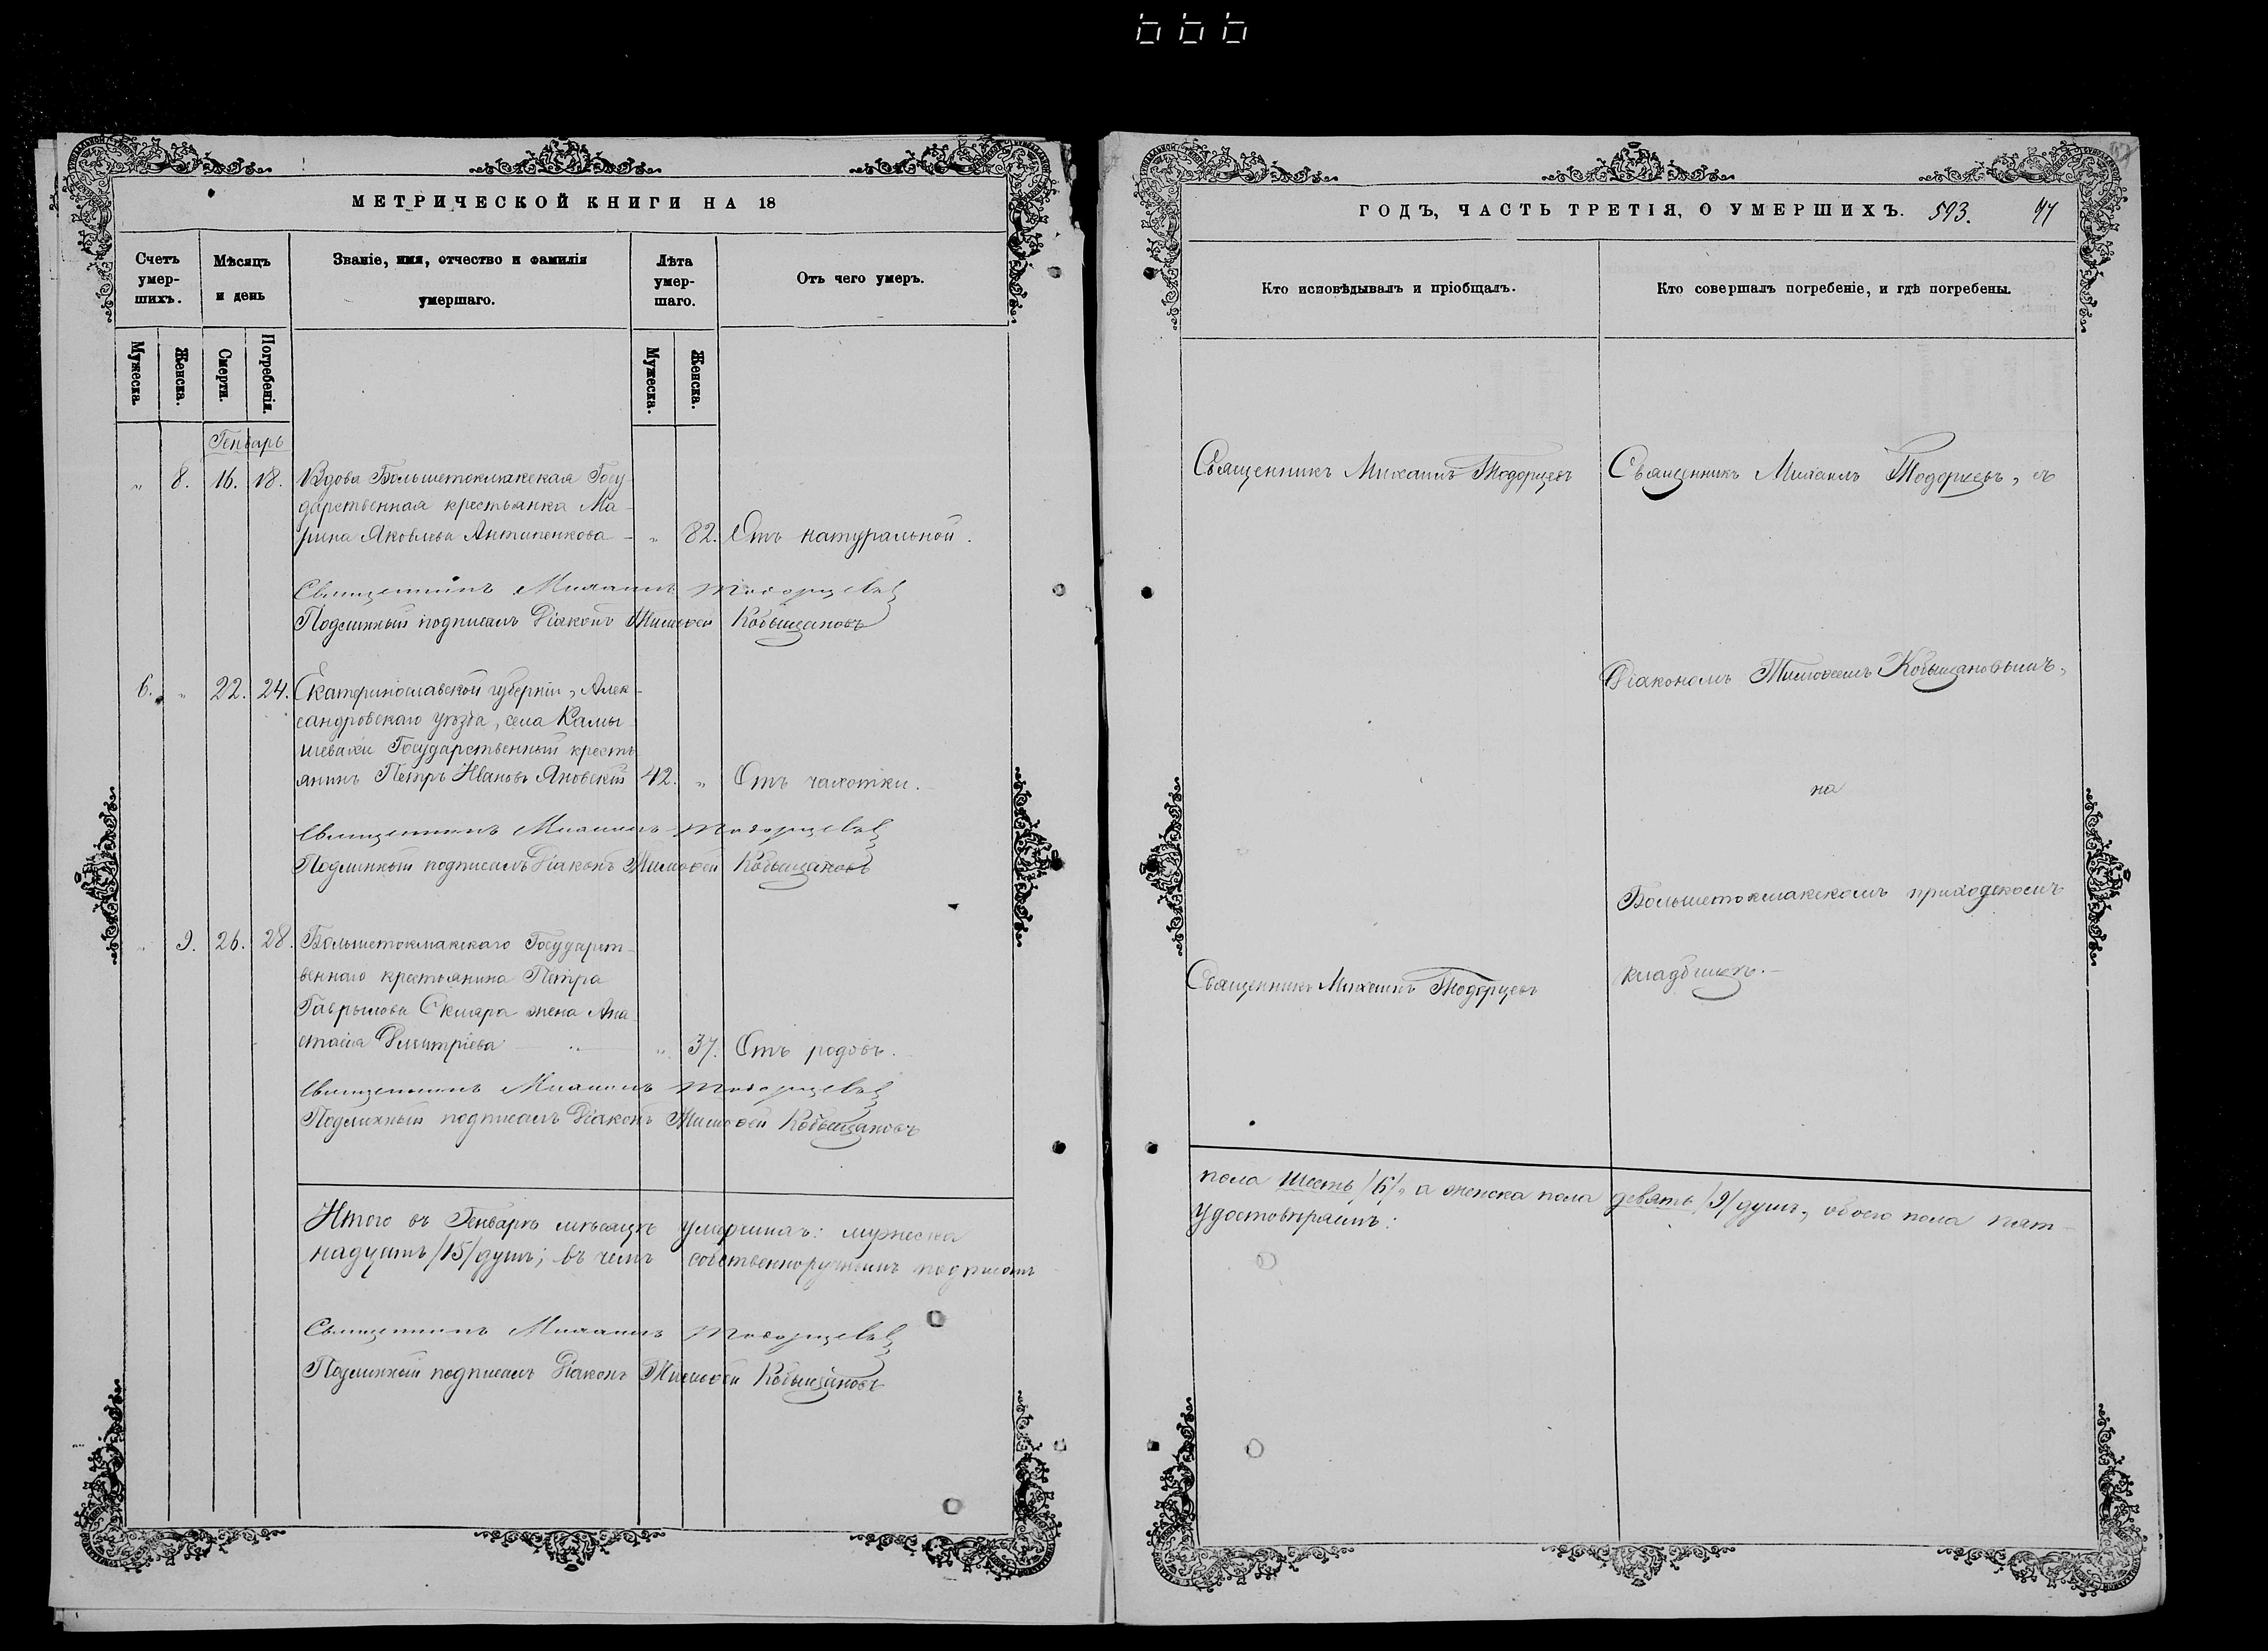 МЕТРИЧЕСКОЙ КНИГИ НА 18
Счетъ умер-шихъ.
Мѣсяцъ и день
Званіе, имя, отчество и фамилія умершаго.
Лѣта умер-шаго.
Отъ чего умеръ.
Мужеска.
Женска.
Смерти.
Погребенія.
Мужеска.
Женска.
Генварь
„ 8. 16. 18. Вдова Большетокмакская Госу-
дарственная крестьянка Ма-
рина Яковлева Антипенкова — „ 82. Отъ натуральной.
Священникъ Михаилъ Тодорцевъ
Подлинный подписалъ Діаконъ Тимоѳей Кобыщановъ
6. „ 22. 24. Екатеринославской губерніи, Алек-
сандровскаго уѣзда, села Камы-
шевахи Государственный кресть-
янинъ Петръ Ивановъ Яновскій 42. „ Отъ чахотки.
Священникъ Михаилъ Тодорцевъ
Подлинный подписалъ Діаконъ Тимоѳей Кобыщановъ
„ 9. 26. 28. Большетокмакскаго Государст-
веннаго крестьянина Петра
Гаврылова Скляра жена Ана-
стасія Димитріева — „ — „ 37. Отъ родовъ.
Священникъ Михаилъ Тодорцевъ
Подлинный подписалъ Діаконъ Тимоѳей Кобыщановъ
Итого въ Генварѣ мѣсяцѣ умершихъ: мужеска
надцать /15/ душъ; въ чемъ собственноручнымъ подписомъ
Священникъ Михаилъ Тодорцевъ
Подлинный подписалъ Діаконъ Тимоѳей Кобыщановъ
ГОДЪ, ЧАСТЬ ТРЕТІЯ, О УМЕРШИХЪ. 593. 97
Кто исповѣдывалъ и пріобщалъ.
Кто совершалъ погребеніе, и гдѣ погребены.
Священникъ Михаилъ Тодорцевъ
Священникъ Михаилъ Тодорцевъ, съ
Діакономъ Тимоѳеемъ Кобыщановымъ,
на
Большетокмакскомъ приходскомъ
Священникъ Михаилъ Тодорцевъ
кладбищѣ.—
пола шесть /6/, а женска пола девять /9/ душъ, обоего пола пят-
удостовѣряемъ: